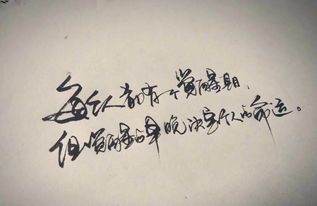 每个人都有一个觉醒期，
但觉醒的早晚决定个人的命运。